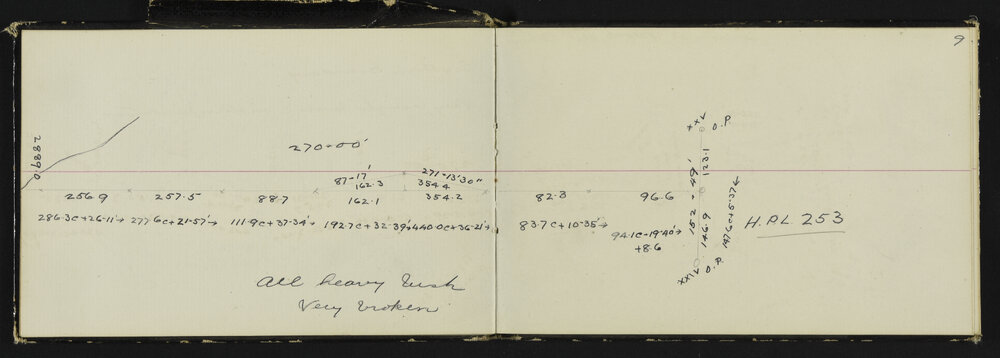 9
2889.0
270-00'
87-17'
162.3
271-13'30"
354.4
256.9 257.5 88.7 162.1 354.2 82.3 96.6
286.3c+26-11'→ 277.6c+21-57'→ 111.9c+37-34'→ 192.7c+32-39'→ 440.0c+36-21'→ 83.7c+10-35'→ 94.1c-19-40'→
+8.6
XXV O.P.
123.1
152-49'
146.9
147.6c+5-37'←
XXIV O.P.
H.P.L. 253
All heavy bush
Very broken